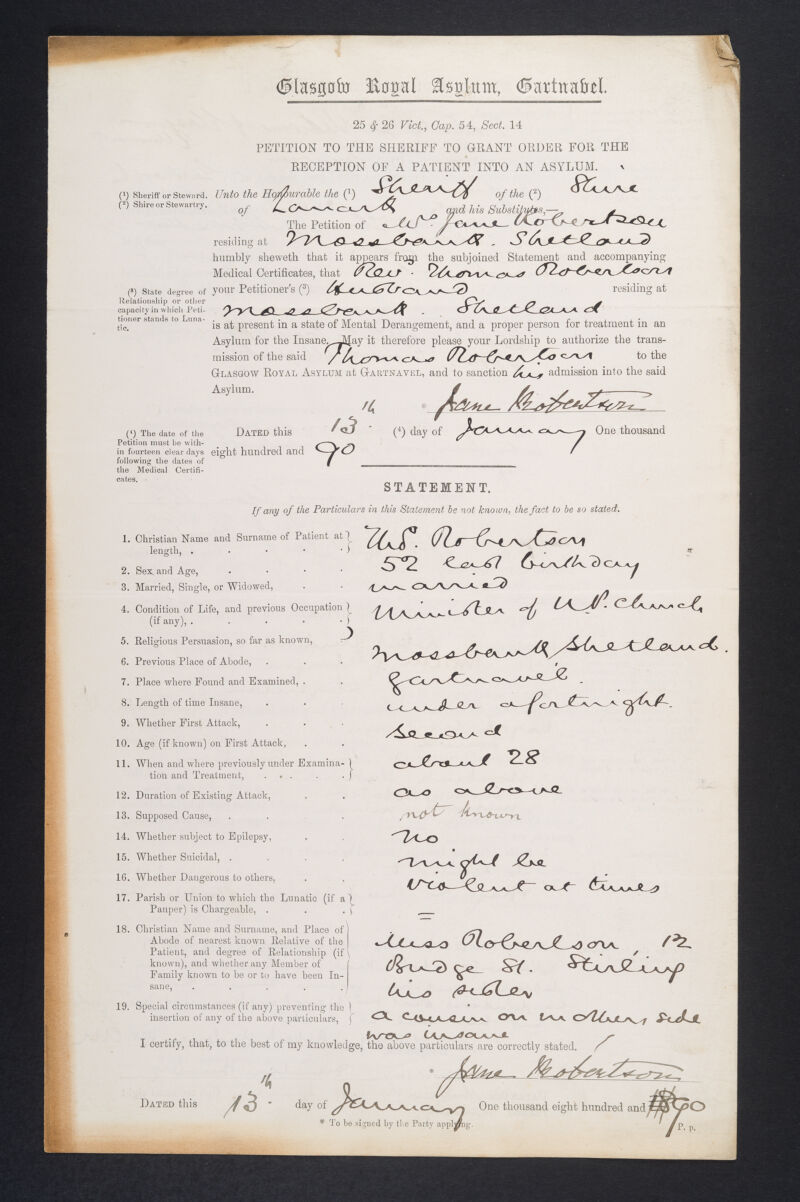 Glasgow Royal Asylum, Gartnavel.
25 & 26 Vict., Cap. 54, Sect. 14
PETITION TO THE SHERIFF TO GRANT ORDER FOR THE
RECEPTION OF A PATIENT INTO AN ASYLUM.
(1) Sheriff or Steward.
(2) Shire or Stewartry.
Unto the Honourable the (1) Sheriff of the (2) Shire
of Lanark and his Substitutes,—
The Petition of Mrs. Jane Robertson
residing at Mossbank. Shetland
humbly sheweth that it appears from the subjoined Statement and accompanying
Medical Certificates, that Rev. Thomas Robertson
(3) State degree of
Relationship or other
capacity in which Peti-
tioner stands to Luna-
tic.
your Petitioner's (3) Husband residing at
Mossbank. Shetland
is at present in a state of Mental Derangement, and a proper person for treatment in an
Asylum for the Insane. May it therefore please your Lordship to authorize the trans-
mission of the said Thomas Robertson to the
GLASGOW ROYAL ASYLUM AT GARTNAVEL, and to sanction his admission into the said
Asylum.
Jane Robertson
(4) The date of the
Petition must be with-
in fourteen clear days
following the dates of
the Medical Certifi-
cates.
DATED this 13th (4) day of January One thousand
eight hundred and 90
STATEMENT.
If any of the Particulars in this Statement be not known, the fact to be so stated.
1. Christian Name and Surname of Patient at
length, . . . . . Robertson
2. Sex and Age, . . . . 52 last birthday
3. Married, Single, or Widowed, . . married
4. Condition of Life, and previous Occupation
(if any), . . . . . . Minister of U.P. Church
5. Religious Persuasion, so far as known,
6. Previous Place of Abode, . . . Mossbank Shetland.
7. Place where Found and Examined, . . Gartnavel.
8. Length of time Insane, . . . under a fortnight.
9. Whether First Attack, . . . second
10. Age (if known) on First Attack, . . about 28
11. When and where previously under Examina-
tion and Treatment, . . . . .
12. Duration of Existing Attack, . . as above
13. Supposed Cause, . . . not known
14. Whether subject to Epilepsy, . . no
15. Whether Suicidal, . . . . might be
16. Whether Dangerous to others, . . violent at times
17. Parish or Union to which the Lunatic (if a
Pauper) is Chargeable, . . . . =
18. Christian Name and Surname, and Place of
Abode of nearest known Relative of the
Patient, and degree of Relationship (if
known), and whether any Member of
Family known to be or to have been In-
sane, . . . . . .
Miss Robertson, 12
Bridge St. Stirling
his sister
19. Special circumstances (if any) preventing the
insertion of any of the above particulars,
a cousin on mothers side
was insane
I certify, that, to the best of my knowledge, the above particulars are correctly stated.
* Jane Robertson
DATED this 13th day of January One thousand eight hundred and 90
* To be signed by the Party applying.
P. p.